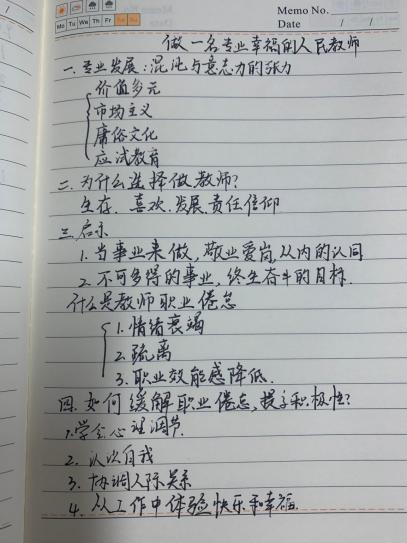 Memo No.
Mo Tu We Th Fr Sa Su
Date / /
做一名专业幸福的人民教师
一、专业发展：混沌与意志力的张力
价值多元
市场主义
庸俗文化
应试教育
二、为什么选择做教师？
生存、喜欢、发展、责任信仰
三、启示
1. 当事业来做，敬业爱岗，从内的认同
2. 不可多得的事业，终生奋斗的目标.
什么是教师职业倦怠
1. 情绪衰竭
2. 疏离
3. 职业效能感降低.
四. 如何缓解职业倦怠，提高积极性？
1. 学会心理调节.
2. 认次自我
3. 协调人际关系
4. 从工作中体验快乐和幸福.